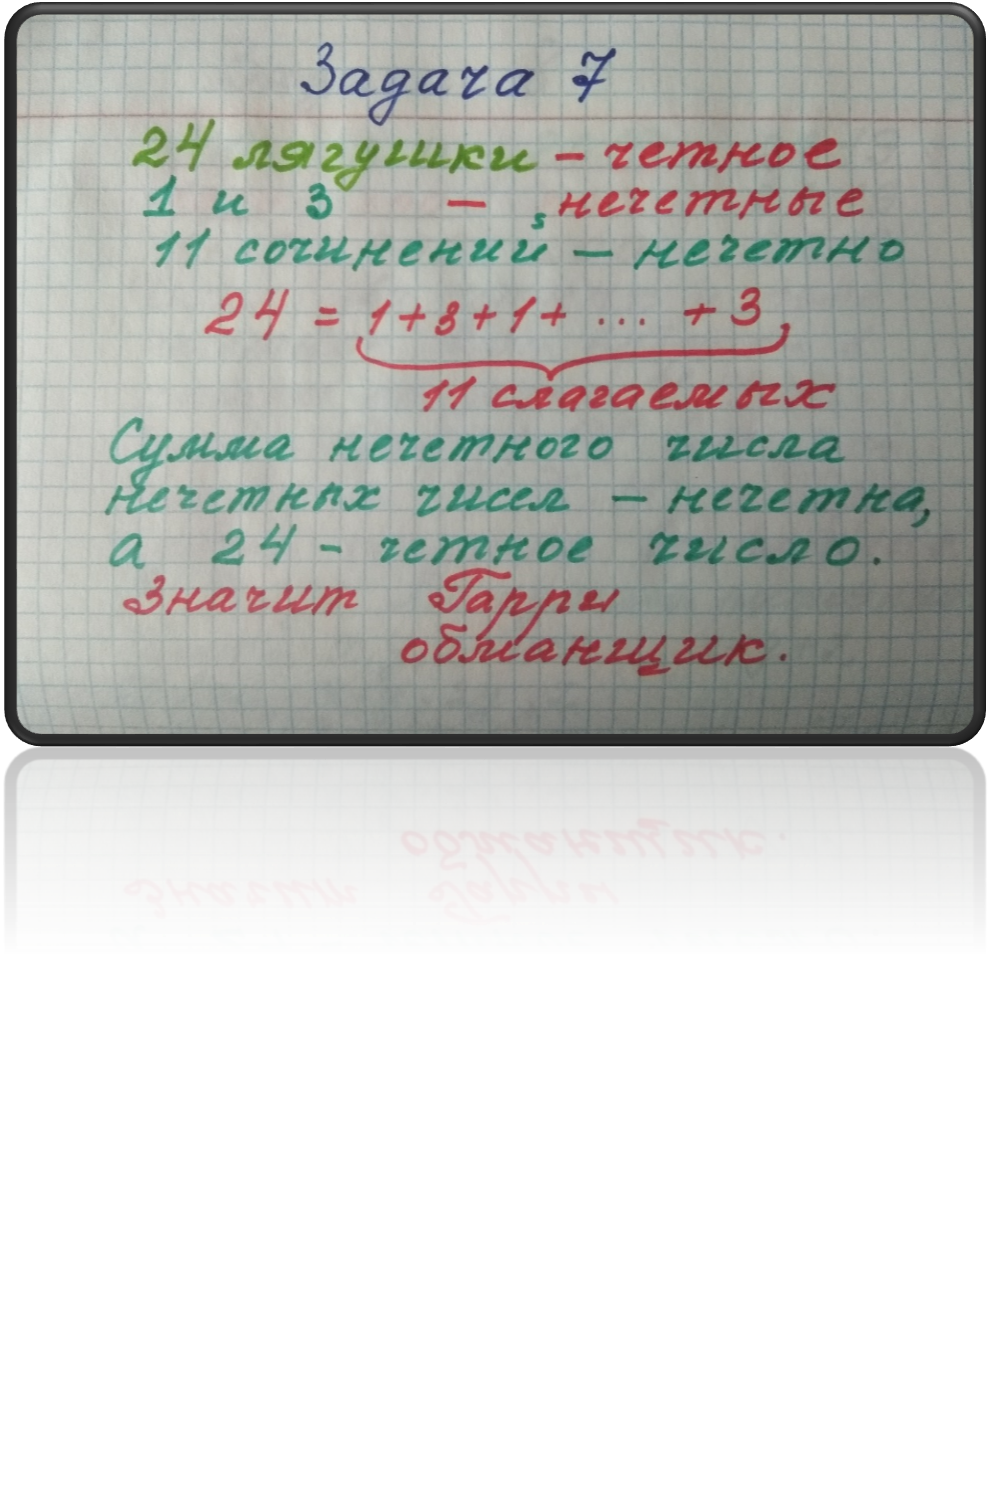 Задача 7
24 лягушки - четное
1 и 3 - нечетные
11 сочинений - нечетно
24 = 1+3+1+ ... +3
11 слагаемых
Сумма нечетного числа
нечетных чисел - нечетна,
а 24 - четное число.
Значит Гарри
обманщик.